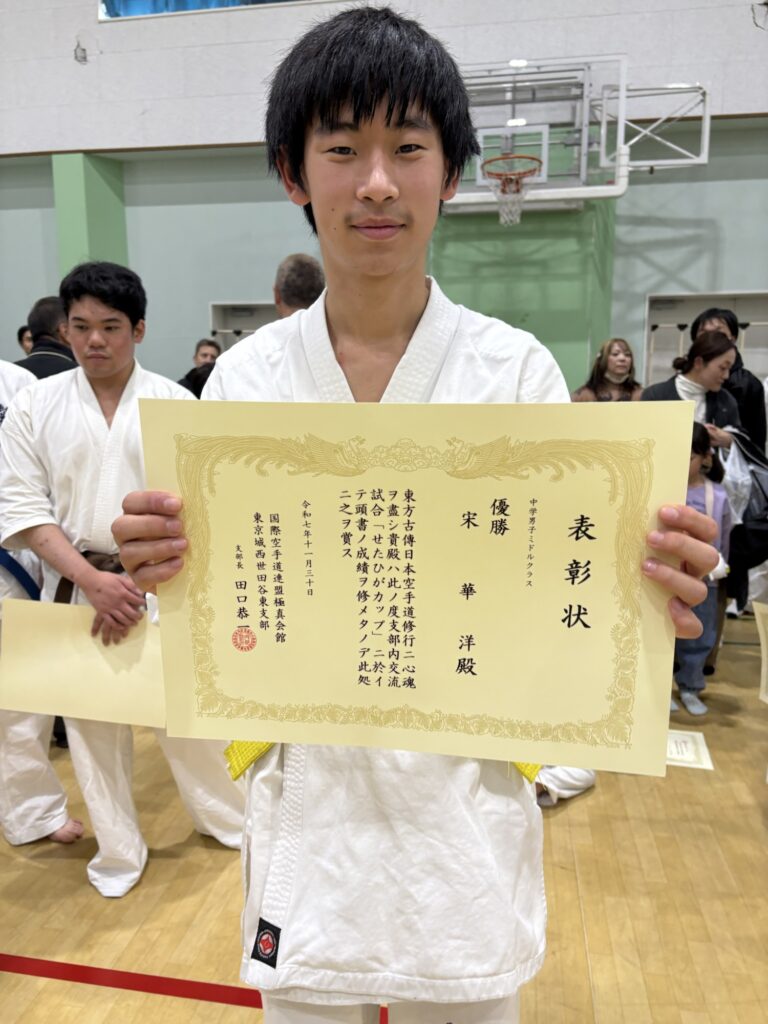 表彰状
中学男子ミドルクラス
優勝
宋華洋殿
東方古傳日本空手道修行二心魂
ヲ盡シ貴殿ハ此ノ度支部内交流
試合「せたひがカップ」二於イ
テ頭書ノ成績ヲ修メタノデ此処
二之ヲ賞ス
令和七年十一月三十日
国際空手道連盟極真会館
東京城西世田谷東支部
支部長 田口恭一